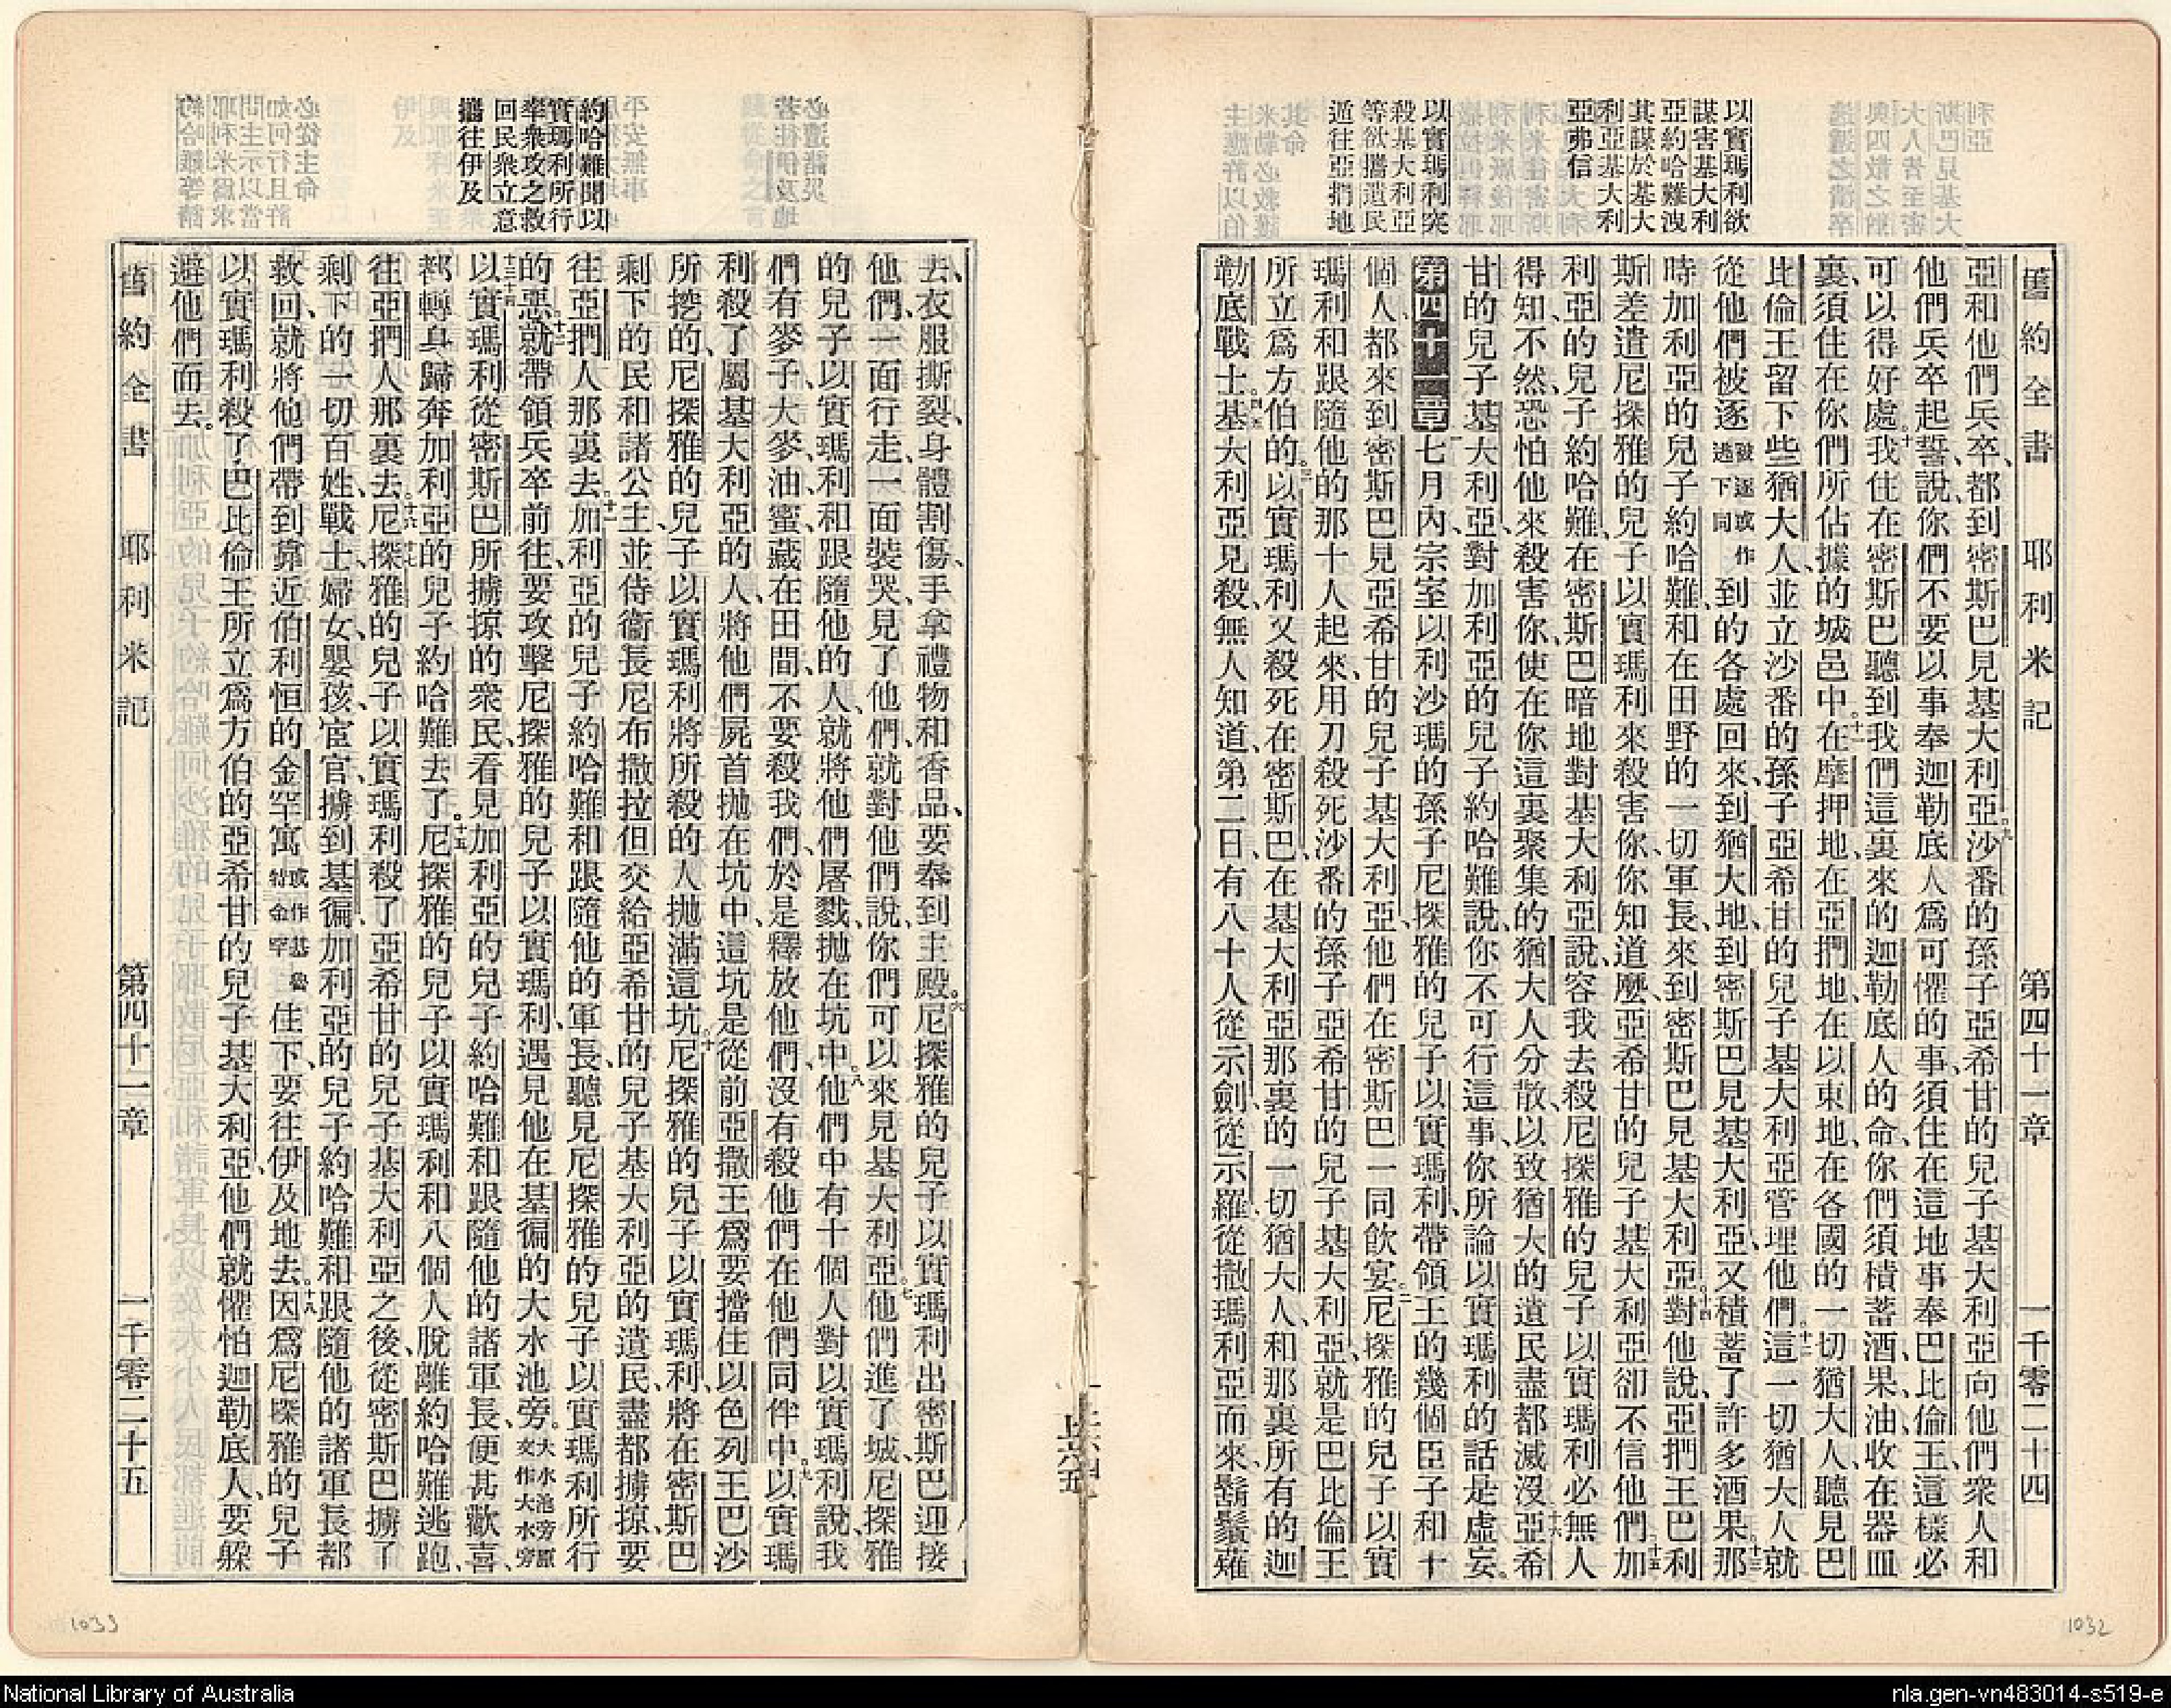 舊約全書 耶利米記 第四十一章 一千零二十四
以實瑪利欲
謀害基大利
亞約哈難洩
其謀於基大
利亞基大利
亞弗信
以實瑪利突
殺基大利亞
等欲擄遺民
遁往亞捫地
亞和他們兵卒、都到密斯巴見基大利亞。九沙番的孫子亞希甘的兒子基大利亞向他們衆人和
他們兵卒起誓、說、你們不要以事奉迦勒底人爲可懼的事、須住在這地事奉巴比倫王、這樣必
可以得好處。十我住在密斯巴聽到我們這裏來的迦勒底人的命、你們須積蓄酒、果、油收在器皿
裏、須住在你們所佔據的城邑中。十一在摩押地、在亞捫地、在以東地、在各國的一切猶大人、聽見巴
比倫王留下些猶大人、並立沙番的孫子亞希甘的兒子基大利亞管理他們。十二這一切猶大人就
從他們被逐被逐或作逃下同到的各處回來、到猶大地、到密斯巴見基大利亞、又積蓄了許多酒果。十三那
時加利亞的兒子約哈難、和在田野的一切軍長、來到密斯巴見基大利亞。十四對他說、亞捫王巴利
斯差遣尼探雅的兒子以實瑪利來殺害你、你知道麼、亞希甘的兒子基大利亞卻不信他們。十五加
利亞的兒子約哈難、在密斯巴暗地對基大利亞說、容我去殺尼探雅的兒子以實瑪利必無人
得知、不然、恐怕他來殺害你、使在你這裏聚集的猶大人分散、以致猶大的遺民盡都滅沒。十六亞希
甘的兒子基大利亞、對加利亞的兒子約哈難說、你不可行這事、你所論以實瑪利的話是虛妄。
第四十一章 一七月內、宗室以利沙瑪的孫子尼探雅的兒子以實瑪利、帶領王的幾個臣子和十
個人、都來到密斯巴見亞希甘的兒子基大利亞、他們在密斯巴一同飲宴。二尼探雅的兒子以實
瑪利和跟隨他的那十人起來、用刀殺死沙番的孫子亞希甘的兒子基大利亞、就是巴比倫王
所立爲方伯的。三以實瑪利又殺死在密斯巴、在基大利亞那裏的一切猶大人、和那裏所有的迦
勒底戰士。四基大利亞見殺、無人知道、第二日、五有八十人從示劍、從示羅、從撒瑪利亞而來、鬍鬚薙
去、衣服撕裂、身體割傷、手拿禮物和香品、要奉到主殿。六尼探雅的兒子以實瑪利出密斯巴迎接
他們、一面行走、一面裝哭、見了他們、就對他們說、你們可以來見基大利亞。七他們進了城、尼探雅
的兒子以實瑪利和跟隨他的人、就將他們屠戮、拋在坑中。八他們中有十個人對以實瑪利說、我
們有麥子、大麥、油、蜜、藏在田間、不要殺我們、於是釋放他們、沒有殺他們在他們同伴中。九以實瑪
利殺了屬基大利亞的人、將他們屍首拋在坑中、這坑是從前亞撒王爲要擋住以色列王巴沙
所挖的、尼探雅的兒子以實瑪利將所殺的人拋滿這坑。十尼探雅的兒子以實瑪利、將在密斯巴
剩下的民和諸公主、並侍衞長尼布撒拉但交給亞希甘的兒子基大利亞的遺民、盡都擄掠、要
往亞捫人那裏去。十一加利亞的兒子約哈難和跟隨他的軍長、聽見尼探雅的兒子以實瑪利所行
的惡、十二就帶領兵卒前往、要攻擊尼探雅的兒子以實瑪利、遇見他在基徧的大水池旁。大水池旁原文作大水旁
十三十四以實瑪利從密斯巴所擄掠的衆民、看見加利亞的兒子約哈難和跟隨他的諸軍長、便甚歡喜、
都轉身歸奔加利亞的兒子約哈難去了。十五尼探雅的兒子以實瑪利和八個人脫離約哈難逃跑、
往亞捫人那裏去。十六十七尼探雅的兒子以實瑪利殺了亞希甘的兒子基大利亞之後、從密斯巴擄了
剩下的一切百姓、戰士、婦女、嬰孩、宦官、擄到基徧、加利亞的兒子約哈難和跟隨他的諸軍長都
救回、就將他們帶到靠近伯利恒的金罕寓或作基魯特金罕住下、要往伊及地去。十八因爲尼探雅的兒子
以實瑪利殺了巴比倫王所立爲方伯的亞希甘的兒子基大利亞、他們就懼怕迦勒底人、要躲
避他們而去。
約哈難聞以
實瑪利所行
率衆攻之救
回民衆立意
攜往伊及
舊約全書 耶利米記 第四十一章 一千零二十五
1033
1032
National Library of Australia
nla.gen-vn483014-s519-e